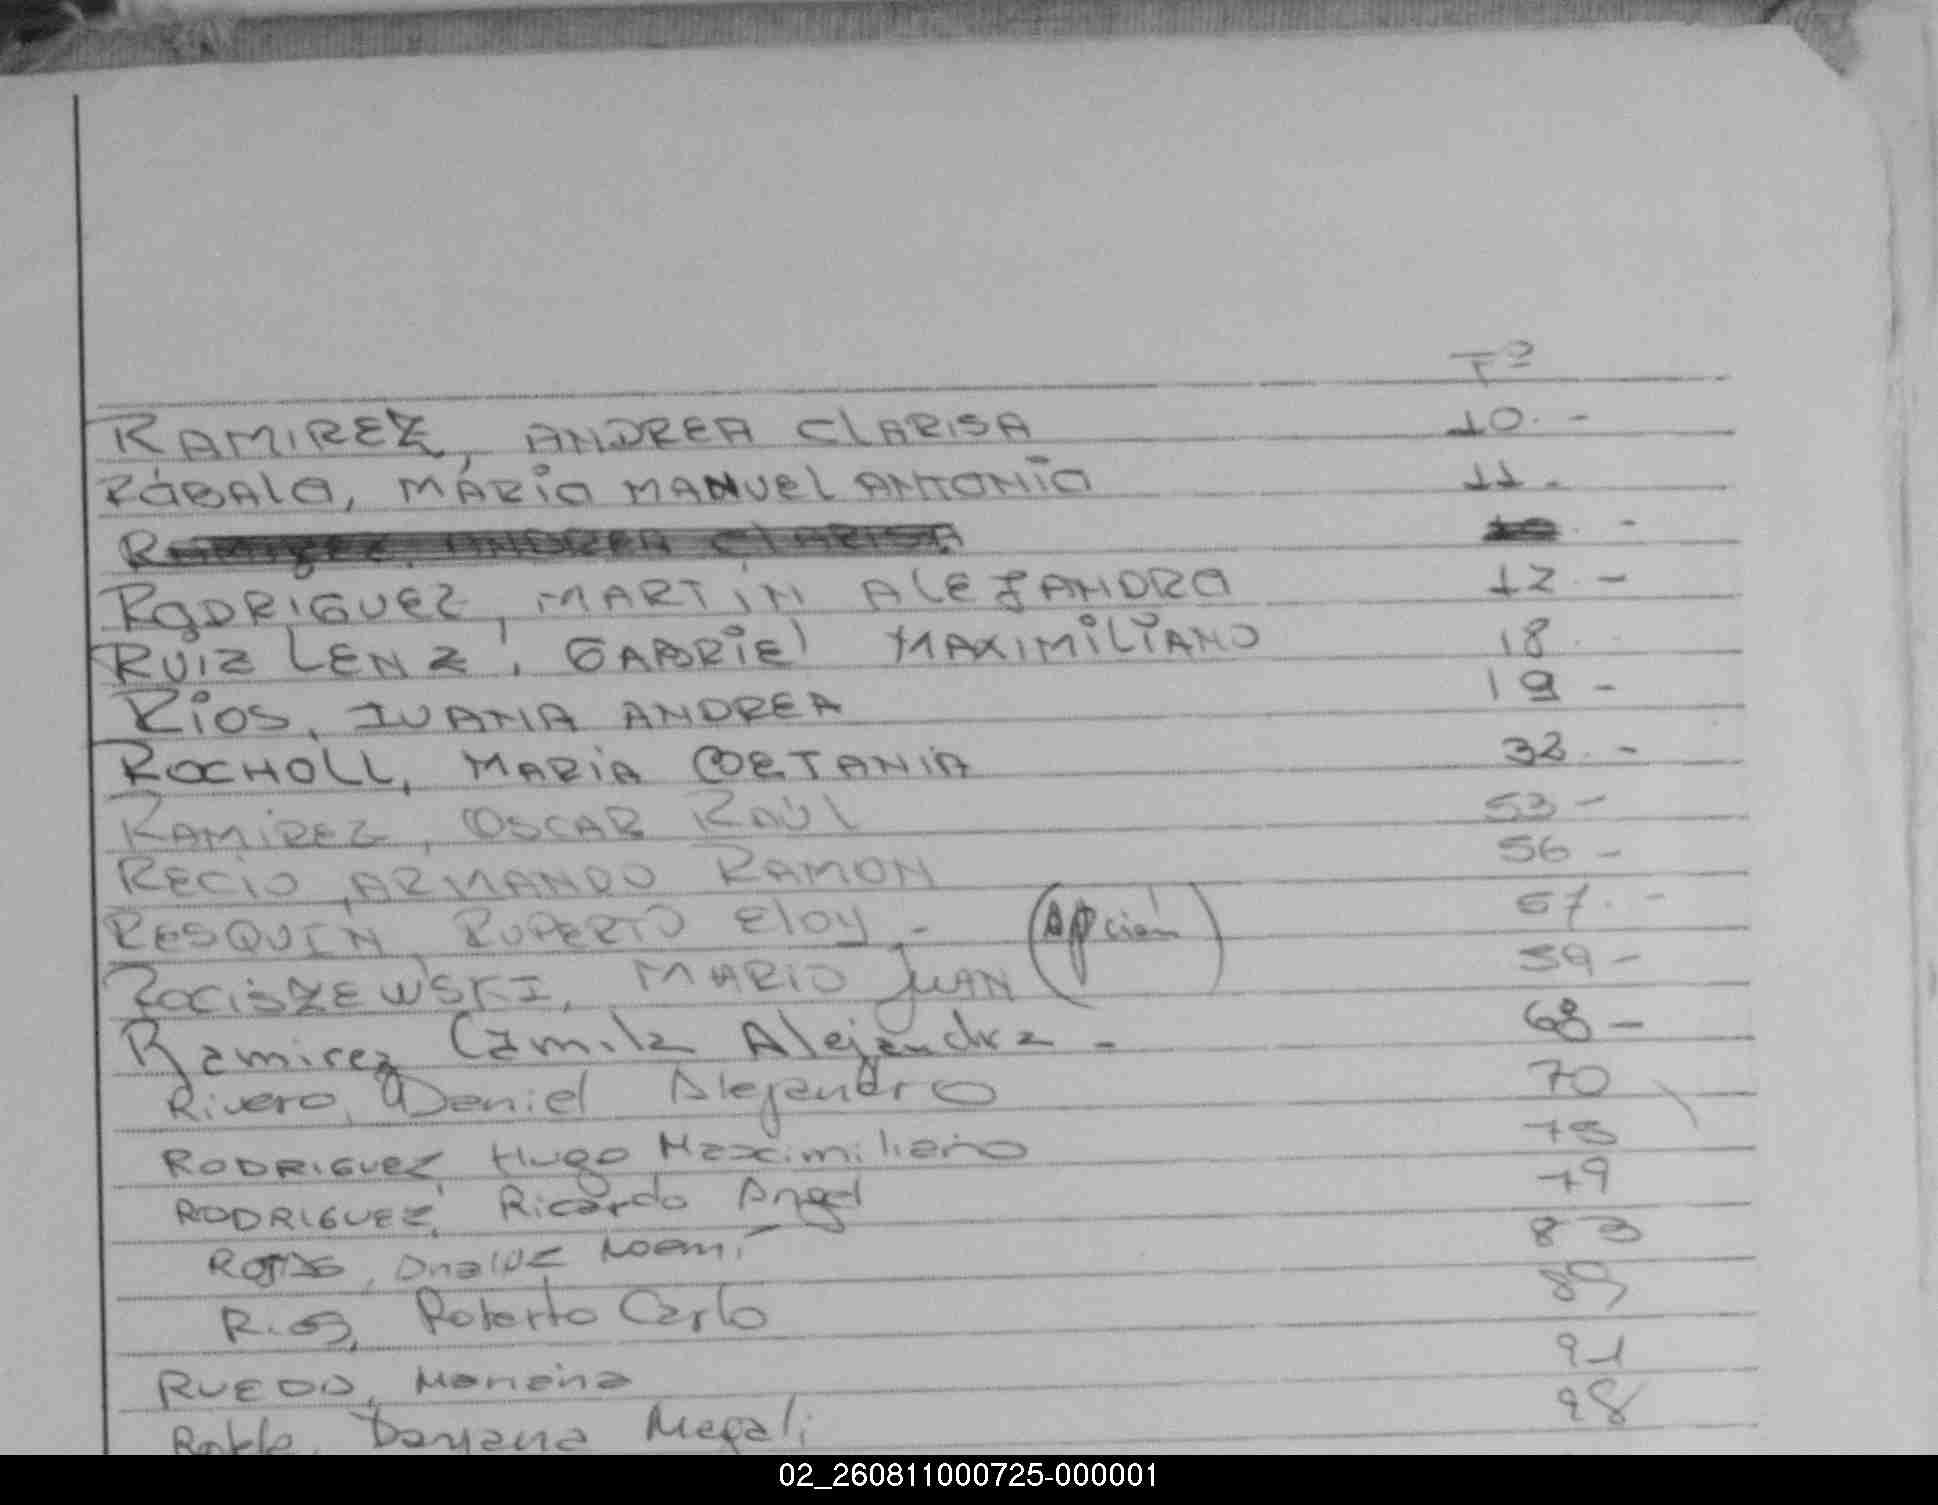 Tº
RAMIREZ, ANDREA CLARISA 10.-
RÁBALO, MARIO MANUEL ANTONIO 11.-
RAMIREZ, ANDREA CLARISA 10.-
RODRIGUEZ, MARTIN ALEJANDRO 12.-
RUIZ LENZ, GABRIEL MAXIMILIANO 18.
RIOS, IVANA ANDREA 19-
ROCHOLL, MARIA 32.-
RAMIREZ, OSCAR RAÚL 53-
RECIO, ARMANDO RAMON 56-
RESQUIN, RUPERTO ELOY.- 57.-
ROCISZEWSKI, MARIO JUAN 59-
Ramirez Camila Alejandra - 68-
Rivero, Daniel Alejandro 70
RODRIGUEZ, Hugo Maximiliano 78
RODRIGUEZ, Ricardo Angel 79
ROJAS, Noemí 83
Rios, Roberto Carlo 89
RUEDA, Mariana 91
Dayana Magali 98
02_260811000725-000001